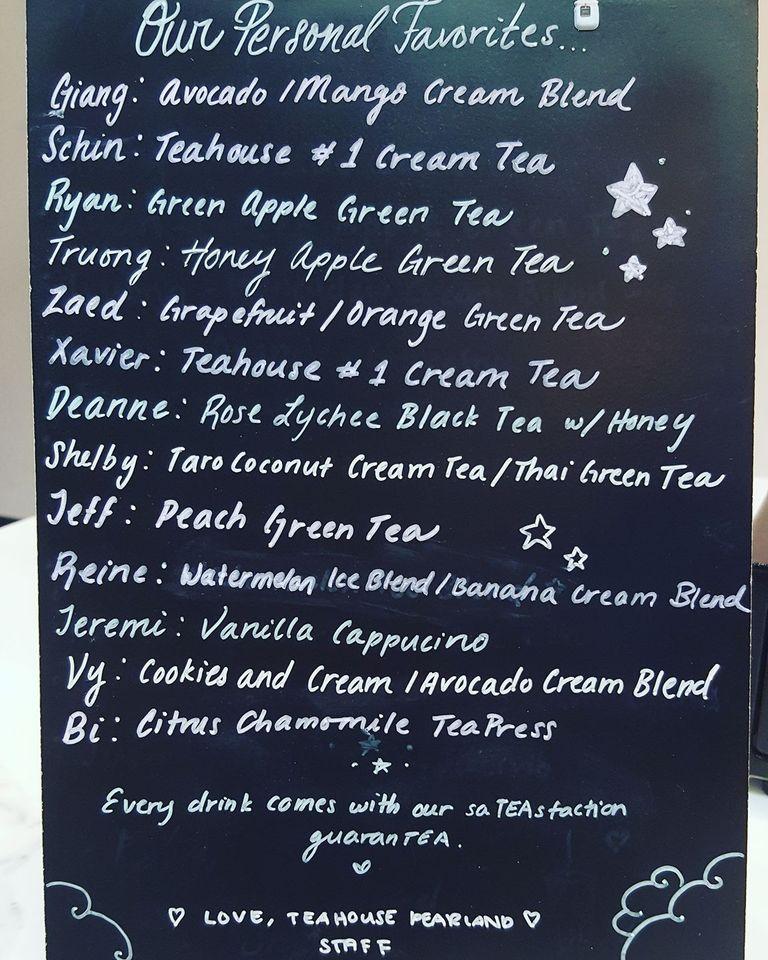 Our Personal Favorites...
Giang: Avocado / Mango Cream Blend
Schin: Teahouse #1 Cream Tea
Ryan: Green Apple Green Tea
Truong: Honey Apple Green Tea
Zaed: Grapefruit / Orange Green Tea
Xavier: Teahouse #1 Cream Tea
Deanne: Rose Lychee Black Tea w/ Honey
Shelby: Taro Coconut Cream Tea / Thai Green Tea
Jeff: Peach Green Tea
Reine: Watermelon Ice Blend / Banana Cream Blend
Jeremi: Vanilla Cappucino
Vy: Cookies and Cream / Avocado Cream Blend
Bi: Citrus Chamomile TeaPress
Every drink comes with our saTEAsfaction
guaranTEA.
♡ LOVE, TEAHOUSE PEARLAND ♡
STAFF